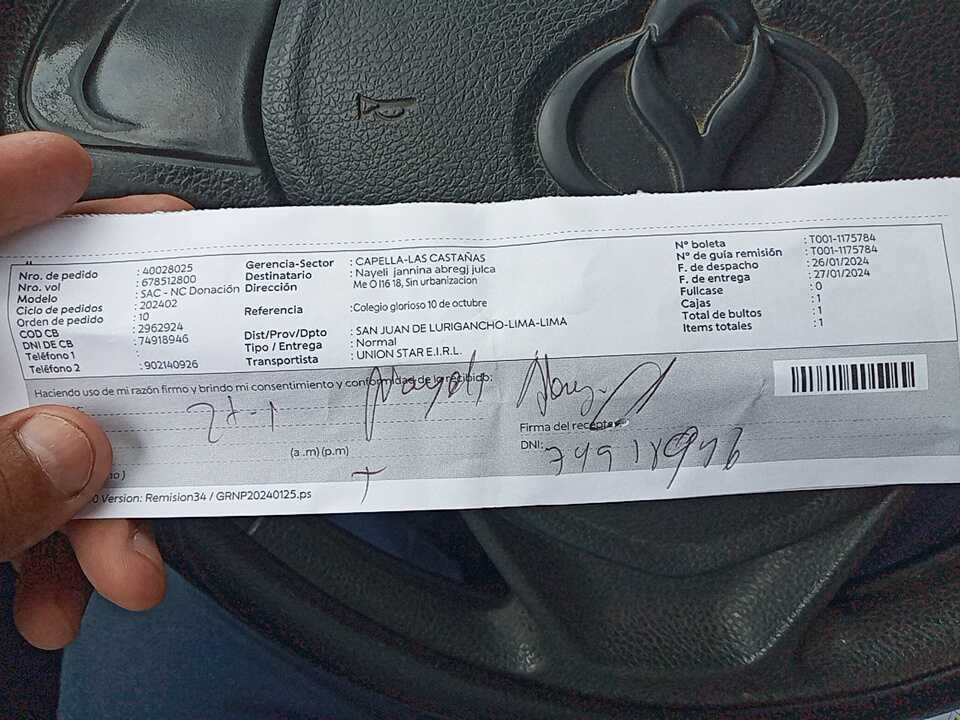 Nro. de pedido : 40028025
Nro. vol : 678512800
Modelo : SAC - NC Donación
Ciclo de pedidos : 202402
Orden de pedido : 10
COD CB : 2962924
DNI DE CB : 74918946
Teléfono 1 :
Teléfono 2 : 902140926
Gerencia-Sector : CAPELLA-LAS CASTAÑAS
Destinatario : Nayeli jannina abregj julca
Dirección : Me O lt6 18, Sin urbanizacion
Referencia :Colegio glorioso 10 de octubre
Dist/Prov/Dpto : SAN JUAN DE LURIGANCHO-LIMA-LIMA
Tipo / Entrega : Normal
Transportista : UNION STAR E.I.R.L.
N° boleta : T001-1175784
N° de guía remisión : T001-1175784
F. de despacho : 26/01/2024
F. de entrega : 27/01/2024
Fullcase : 0
Cajas : 1
Total de bultos : 1
Items totales : 1
Haciendo uso de mi razón firmo y brindo mi consentimiento y conformidad de lo recibido:
27-1
(a .m) (p.m)
Firma del receptor
DNI: 74918946
0 Version: Remision34 / GRNP20240125.ps